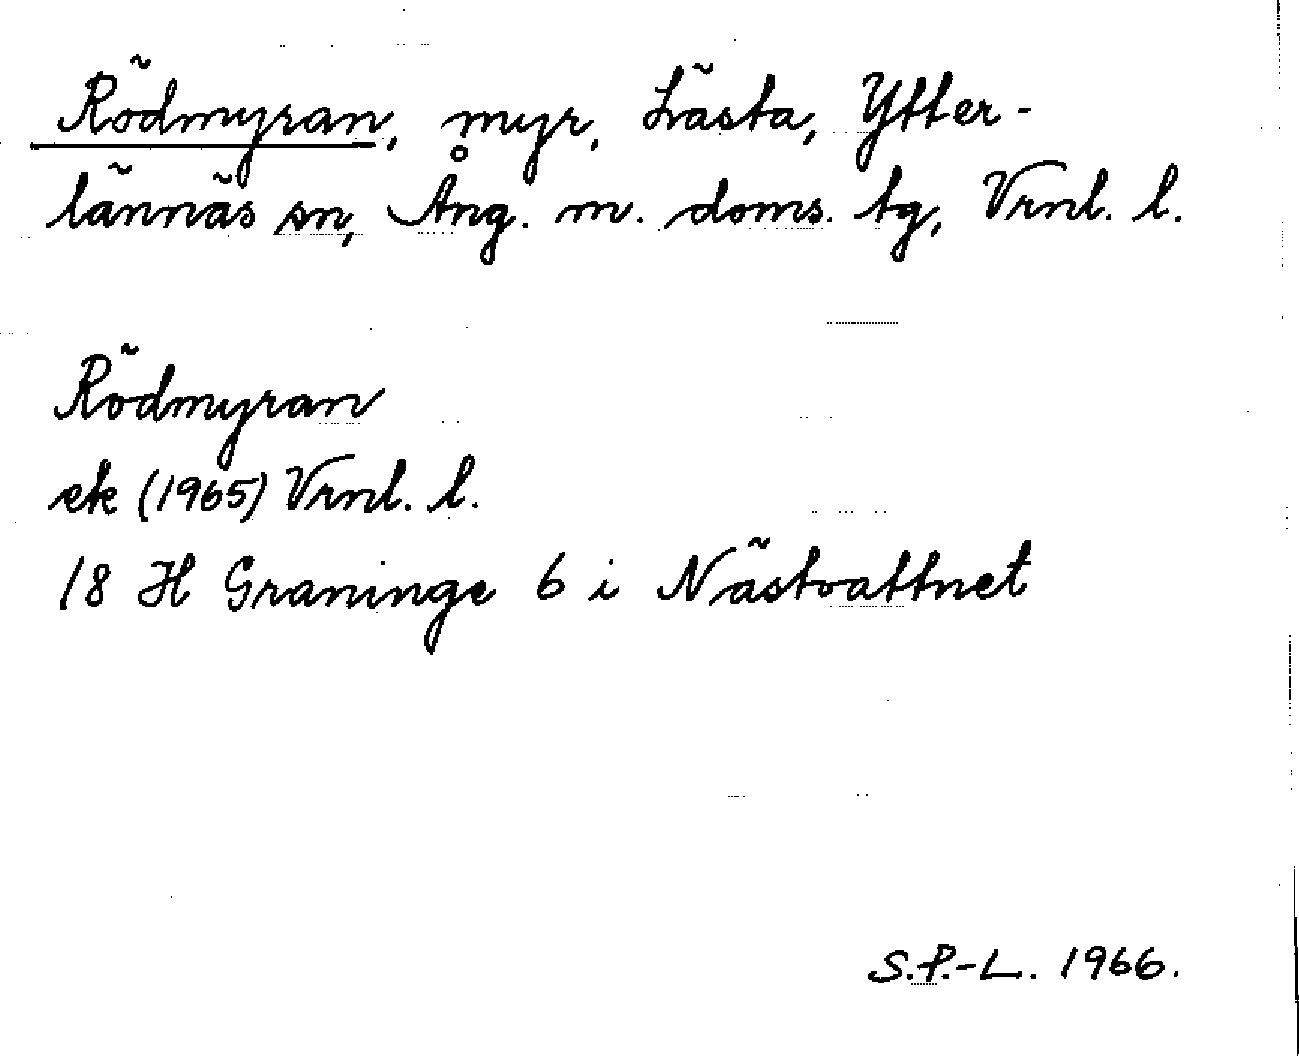 Rödmyran, myr, Lästa, Ytter-
lännäs sn, Ång. m. doms. tg, Vrnl. l.
Rödmyran
ek (1965) Vrnl. l.
18 H Graninge 6 i Nästvattnet
S.P.-L. 1966.